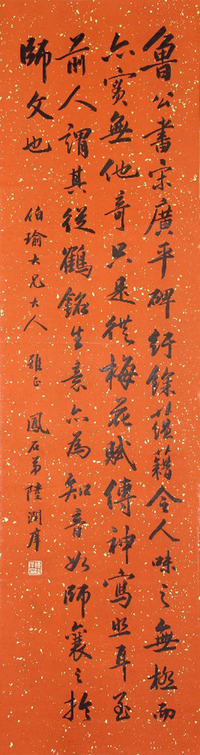 魯公書宋廣平碑紆餘蘊藉令人味之無極而
亦實無他奇只是從梅花賦傳神寫照耳至
前人謂其從鶴銘生意亦為知音如師襄之於
師文也
伯瑜大兄大人 雅正 鳳石弟陸潤庠